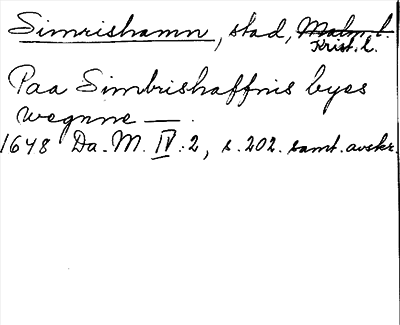 Simrishamn, stad, Malm. l.
Krist. l.
Paa Simbrishaffnis byes
wegnne —.
1648 Da. M. IV: 2, s. 202. samt. avskr.